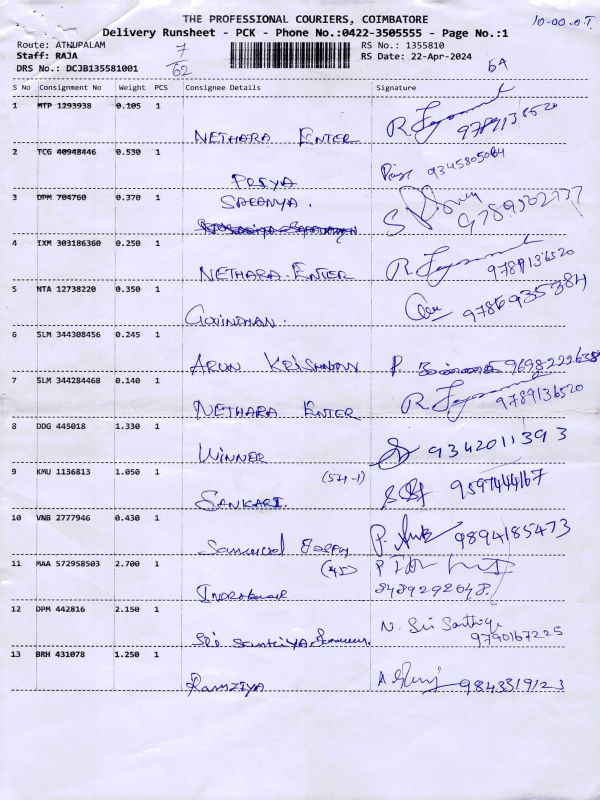 THE PROFESSIONAL COURIERS, COIMBATORE
10-00.
Delivery Runsheet - PCK - Phone No.:0422-3505555 - Page No.:1
Route: ATHUPALAM 7 RS No.: 1355810
Staff: RAJA RS Date: 22-Apr-2024
DRS No.: DCJB135581001 62
S No Consignment No Weight PCS Consignee Details Signature
1 MTP 1293938 0.105 1
NETHARA ENTER R 9789136520
2 TCG 40948446 0.530 1
PRIYA 9345805064
3 DPM 704760 0.370 1 SARANYA.
4 IXM 303186360 0.250 1
NETHARA ENTER R 9789136520
5 NTA 12738220 0.350 1
GOVINDHAN. 9786935384
6 SLM 344308456 0.245 1
ARUN KRISHNAN P. 9698222638
7 SLM 344284468 0.140 1
NETHARA ENTER R 9789136520
8 DDG 445018 1.330 1
WINNER 9342011393
9 KMU 1136813 1.050 1
SANKARI. 9597444167
10 VNB 2777946 0.430 1
P. 9894185473
11 MAA 572958503 2.700 1
8489292648.
12 DPM 442816 2.150 1
Sri N. Sri
9790167225
13 BRH 431078 1.250 1
RAMZIYA A 9843319123